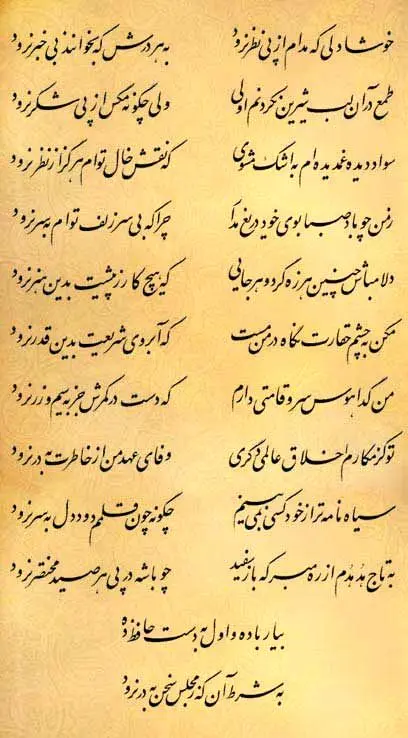 خوشا دلی که مدام از پی نظر نرود به هر درش که بخوانند بی خبر نرود
طمع در آن لب شیرین نکردنم اولی ولی چگونه مگس از پی شکر نرود
سواد دیده غمدیده ام به اشک مشوی که نقش خال توام هرگز از نظر نرود
ز من چو باد صبا بوی خود دریغ مدار چرا که بی سر زلف توام به سر نرود
دلا مباش چنین هرزه گرد و هرجایی که هیچ کار ز پیشت بدین هنر نرود
مکن به چشم حقارت نگاه در من مست که آبروی شریعت بدین قدر نرود
من گدا هوس سرو قامتی دارم که دست در کمرش جز به سیم و زر نرود
تو کز مکارم اخلاق عالمی دگری وفای عهد من از خاطرت به در نرود
سیاه نامه تر از خود کسی نمی بینم چگونه چون قلمم دود دل به سر نرود
به تاج هُدهُدم از ره مبر که باز سفید چو باشه در پی هر صید مختصر نرود
بیار باده و اول به دست حافظ ده
به شرط آن که ز مجلس سخن به در نرود